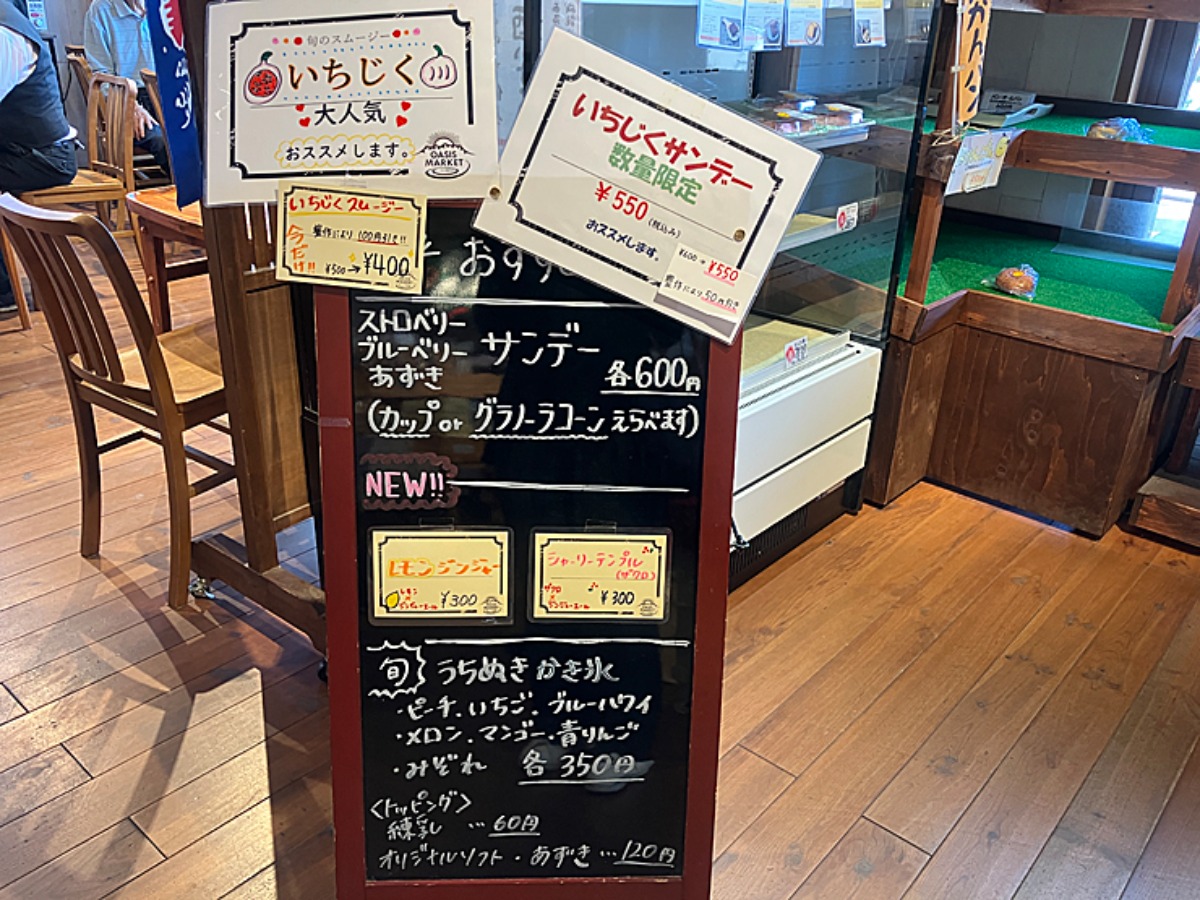 旬のスムージー
いちじく
大人気
おススメします。
OASIS
MARKET
いちじくサンデー
数量限定
¥550(税込み)
おススメします。
¥600→¥550
豊作により50円引き
いちじくスムージー
今だけ!!
豊作により100円引き!!
¥500→¥400
ストロベリー
ブルーベリー
あずき
サンデー
各600円
(カップor グラノーラコーン えらべます)
NEW!!
レモンジンジャー
レモン
×
ジンジャーエール
¥300
シャーリーテンプル
(ザクロ)
ザクロ
×
ジンジャーエール
¥300
旬 うちぬきかき氷
・ピーチ、いちご、ブルーハワイ
・メロン、マンゴー・青りんご
・みぞれ 各350円
〈トッピング〉
練乳 …60円
オリジナルソフト・あずき…120円